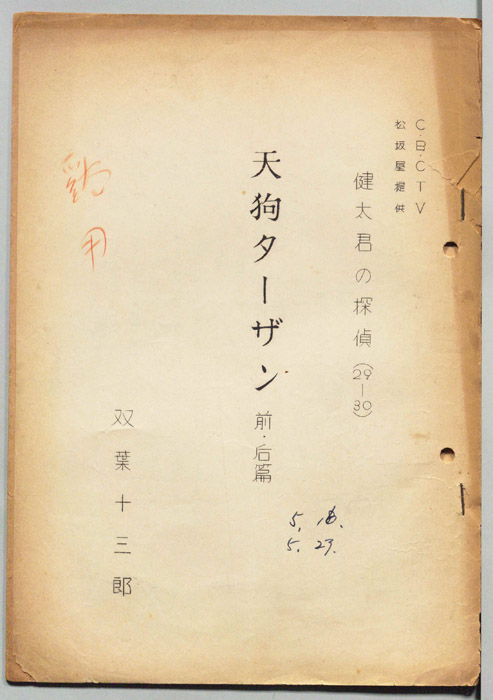 C.B.C TV
松坂屋提供
健太君の探偵(29—30)
天狗ターザン 前・后篇
双葉十三郎
5. 16.
5. 23.
用